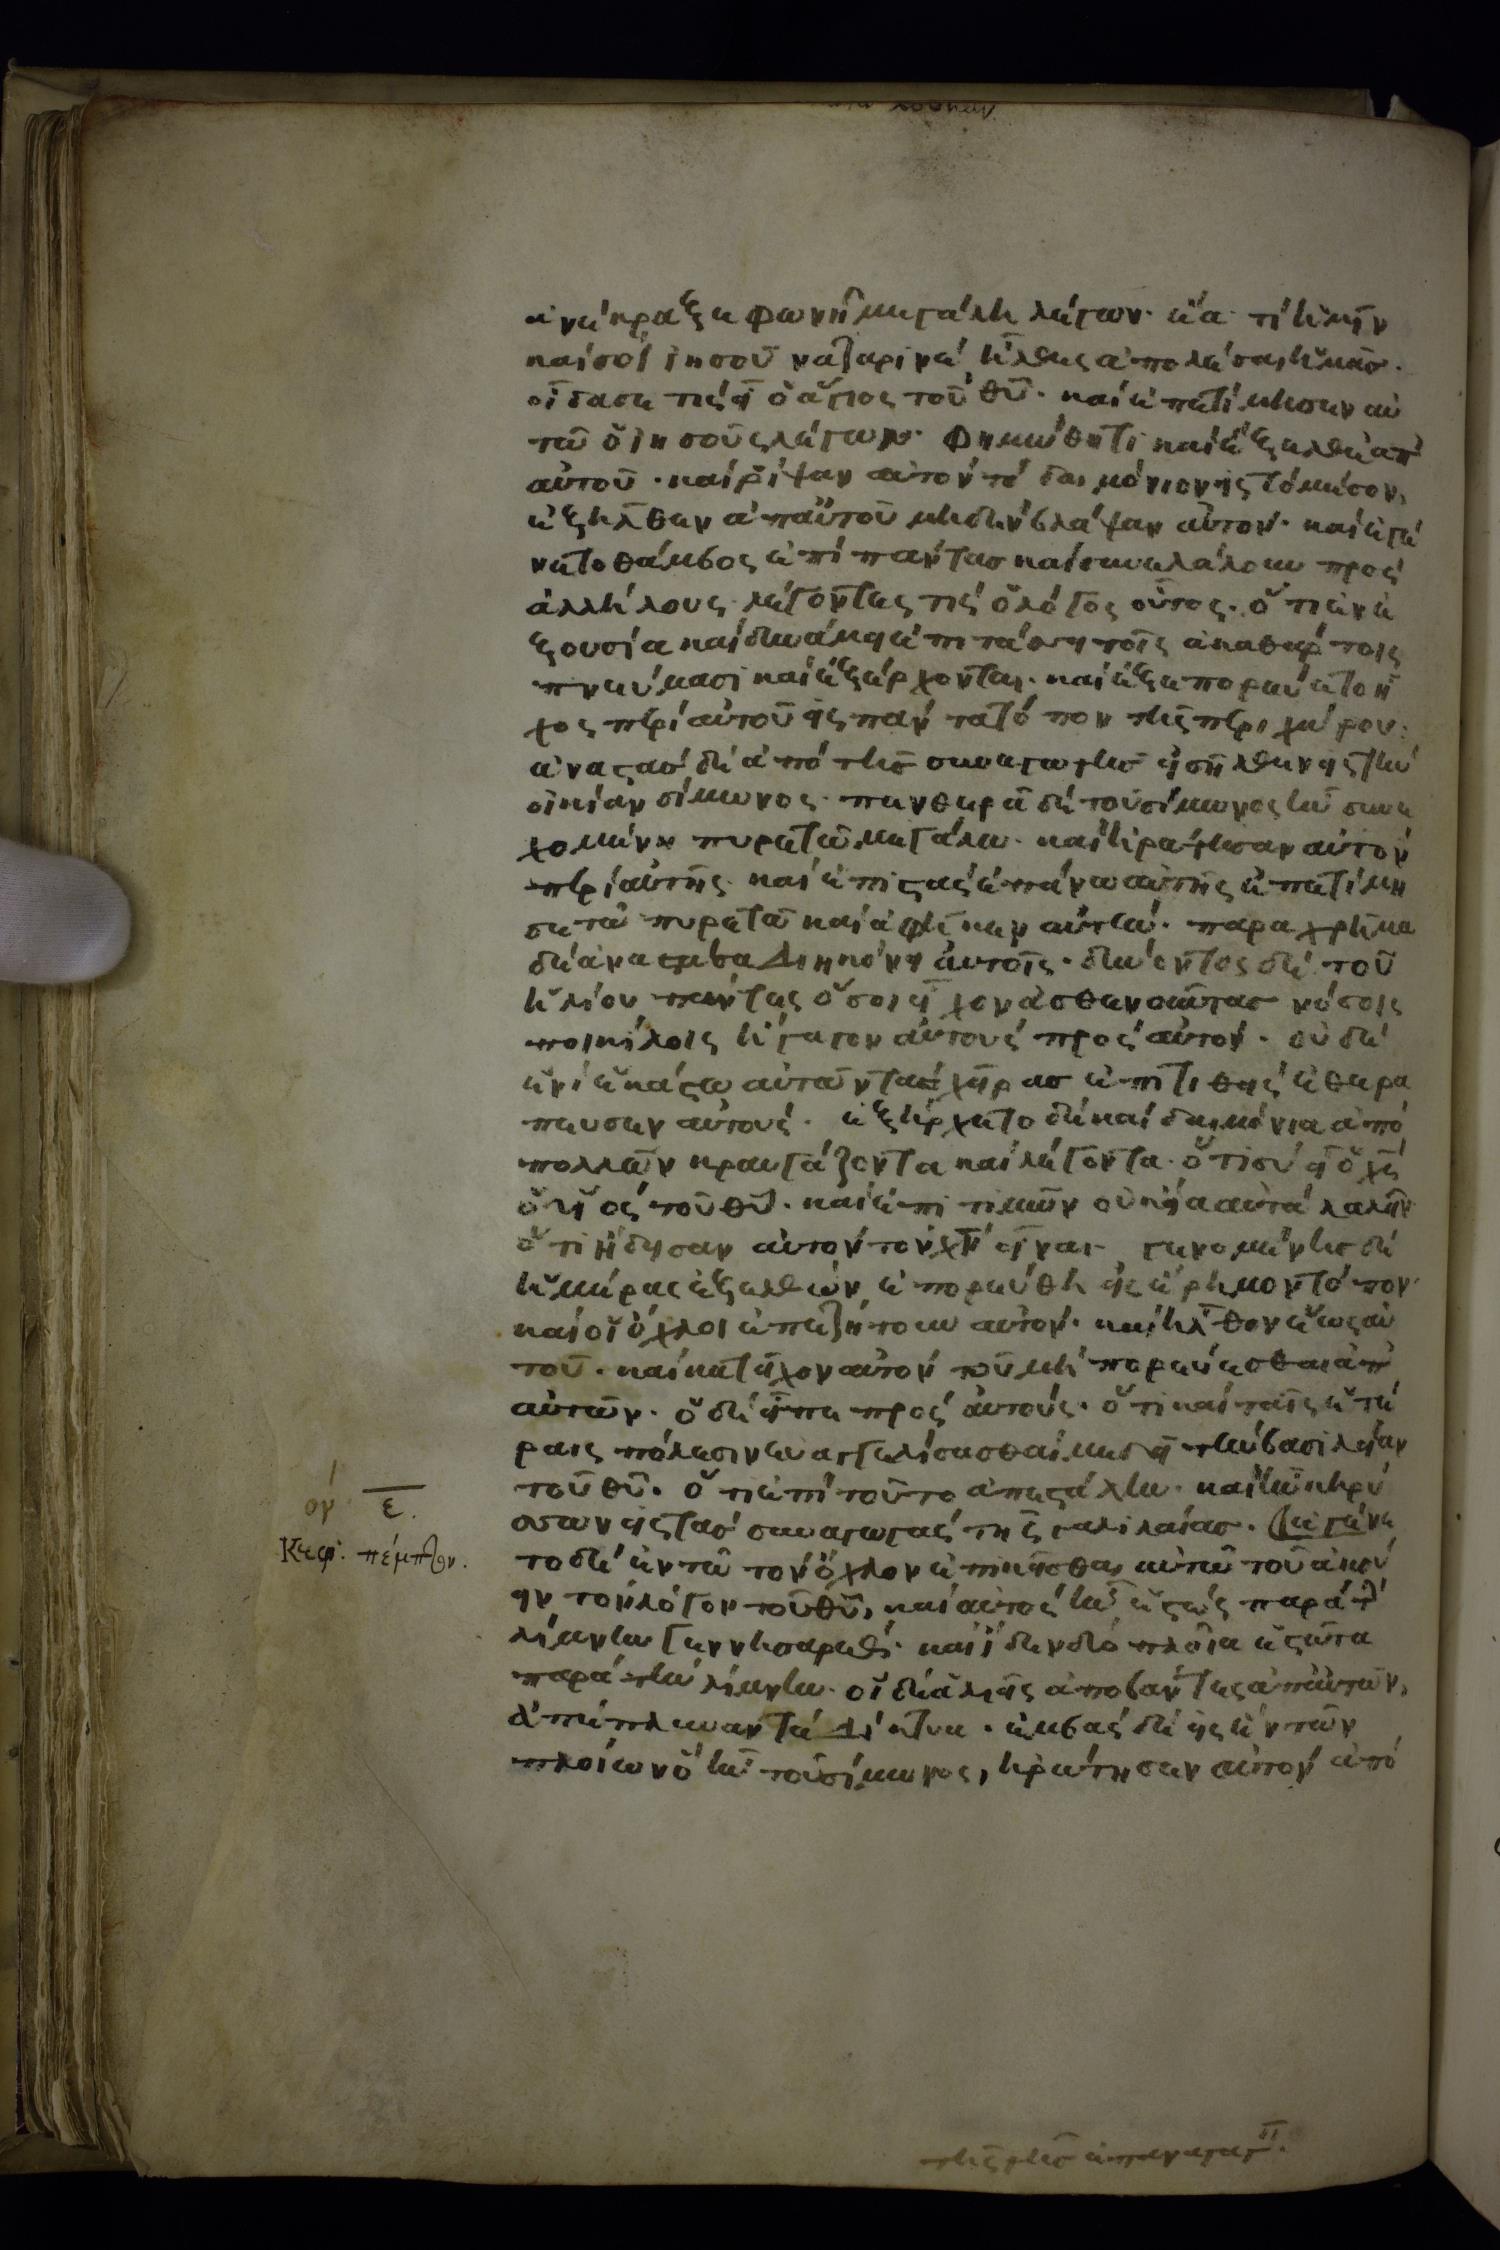 ἀνέκραξε φωνῆ μεγάλη λέγων· ἔα· τί ἡμῖν
καί σοί ἰησοῦ ναζαρινέ, ἦλθες ἀπολέσαι ἡμᾶσ·
οἶδασε τίς εἶ ὁ ἅγιος τοῦ θῦ· καί ἐπετίμησεν αὐ
τῶ ὁ ἰησοῦς λέγων· φημώθητι καί ἔξελθε ἀπ'
αὐτοῦ· καί ρίψαν αὐτόν τό δαιμόνιον εἰς τό μέσον,
ἐξῆλθεν ἀπ αὐτοῦ μηδέν βλάψαν αὐτόν· καί ἐγέ
νετο θάμβος ἐπί πάντασ καί συνελάλουν πρός
ἀλλήλους λέγοντες τίς ὁ λόγος οὗτος· ὅτι ἐν ἐ
ξουσία καί δυνάμει ἐπιτάσσει τοῖς ἀκαθάρτοις
πνεύμασι καί ἐξέρχονται· καί ἐξεπορεύετο ἦ
χος περί αὐτοῦ εἰς πάντα τόπον τῆς περιχώρου·
ἀναστάσ δέ ἀπό τῆσ συναγωγῆσ εἰσῆλθεν εἰς τήν
οἰκίαν σίμωνος· πενθερᾶ δέ τοῦ σίμωνος ἦν συνε
χομένη πυρετῶ μεγάλω· καί ἠρώτησαν αὐτόν
περί αὐτῆς· καί ἐπιστάς ἐπάνω αὐτῆς ἐπετίμη
σε τῶ πυρετῶ καί ἀφῆκεν αὐτήν· παραχρῆμα
δέ ἀναστᾶσα διηκόνει αὐτοῖς· δύνοντος δέ τοῦ
ἡλίου πάντες ὅσοι εἶχον ἀσθενοῦντασ νόσοις
ποικίλοις ἤγαγον αὐτούς πρός αὐτόν· ὁ δέ
ἑνί ἑκάστω αὐτῶν τάς χεῖρασ ἐπιτιθείς ἐθερά
πευσεν αὐτούς· ἐξήρχετο δέ καί δαιμόνια ἀπό
πολλῶν κραυγάζοντα καί λέγοντα· ὅτι σύ εἶ ὁ χς
ὁ υἱός τοῦ θῦ· καί ἐπιτιμῶν οὐκ εἴα αὐτά λαλεῖν
ὅτι ἤδεισαν αὐτόν τόν χν εἶναι γενομένησ δέ
ἡμέρας ἐξελθών ἐπορεύθη εἰς ἔρημον τόπον·
καί οἱ ὄχλοι ἐπεζήτουν αὐτόν· καί ἦλθον ἕως αὐ
τοῦ· καί κατεῖχον αὐτόν τοῦ μή πορεύεσθαι ἀπ'
αὐτῶν· ὁ δέ εἶπε πρός αὐτούς· ὅτι καί ταῖς ἑτέ
ραις πόλεσιν εὐαγγελίσασθαί με δεῖ τήν βασιλείαν
τοῦ θῦ· ὅτι ἐπί τοῦτο ἀπεστάλην· καί ἦν κηρύ
σσων εἰς τάσ συναγωγάς τῆς γαλιλαίασ· ἐγένε
ογ´ ε.
Κεφ. πέμπτον.
το δέ ἐν τῶ τόν ὄχλον ἐπικεῖσθαι αὐτῶ τοῦ ἀκού
ειν τόν λόγον τοῦ θῦ, καί αὐτός ἦν ἑστώς παρά τὴ
λίμνην γεννησαρεθ· καί ἴδεν δύο πλοῖα ἑστῶτα
παρά τήν λίμνην· οἱ δέ ἁλιεῖς ἀποβάντες ἀπ αὐτῶν,
ἀπέπλυναν τά δίκτυα· ἐμβάς δέ εἰς ἕν τῶν
πλοίων ὅ ἦν τοῦ σίμωνος, ἠρώτησεν αὐτόν ἀπό